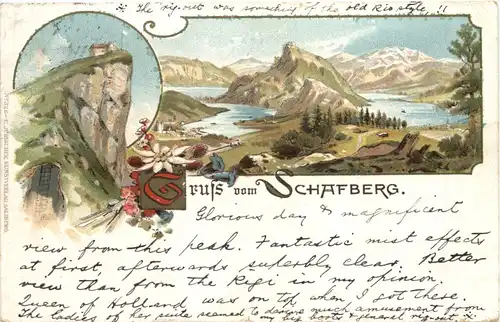 ※ The "rig-out" was something of the old Rio style, !!
Gruss vom Schafberg.
Glorious day & magnificent
view from this peak. Fantastic mist effects
at first, afterwards superbly clear. Better
view than from the Rigi in my opinion
Queen of Holland was on top when I got there,
The ladies of her suite seemed to derive much amusement from
my big boots & general rig-out ※